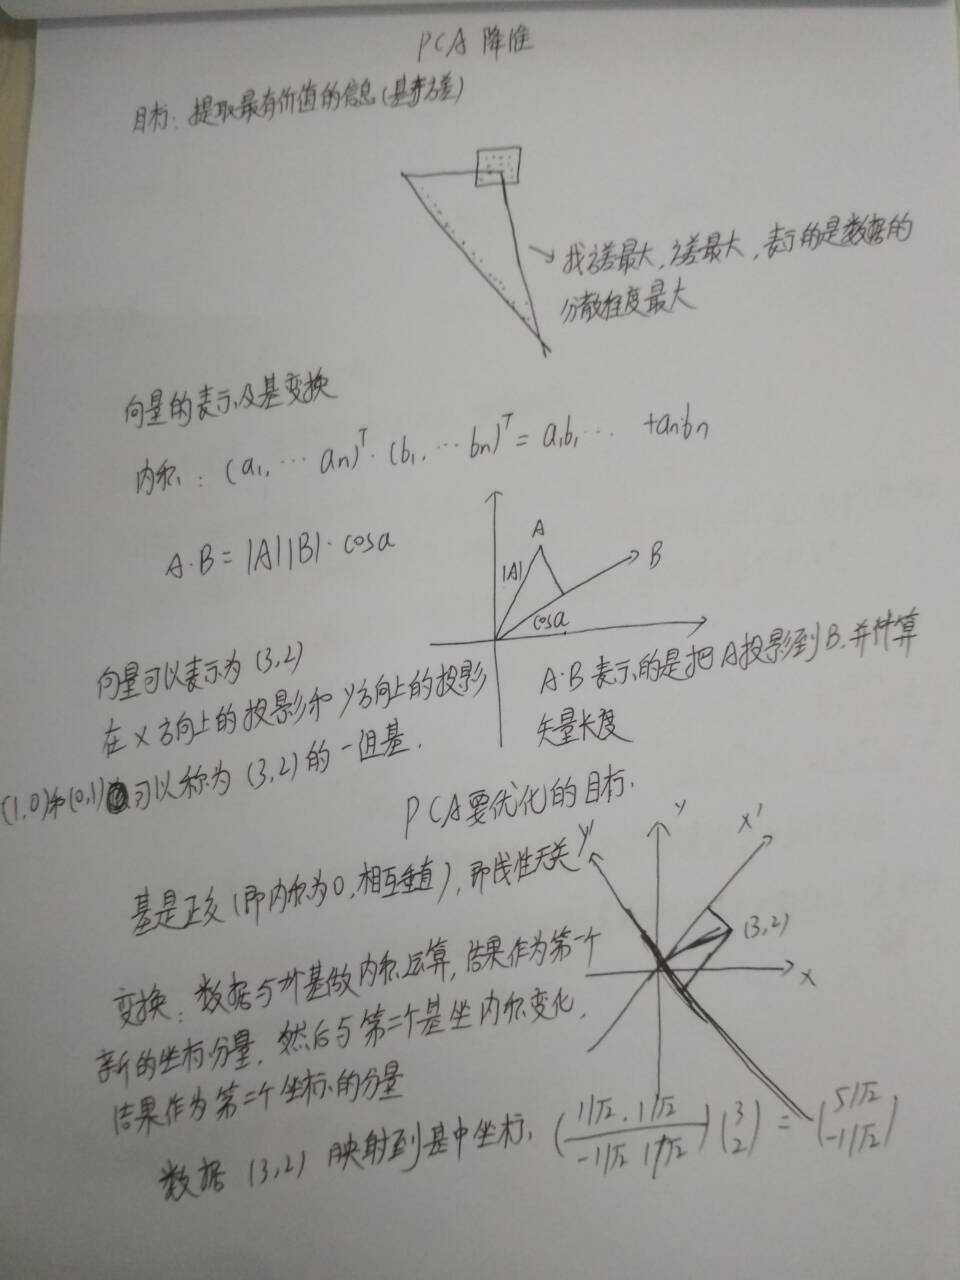 PCA 降维
目标: 提取最有价值的信息(基于方差)
→ 找方差最大, 方差最大, 表示的是数据的
分散程度最大
向量的表示及基变换
内积: (a1, … an)^T · (b1, … bn)^T = a1b1 … + anbn
A·B = |A||B|·cosa
A
B
|A|
cosa
向量可以表示为 (3,2)
在 X 方向上的投影和 Y方向上的投影
(1,0)和(0,1) 可以称为 (3,2) 的一组基.
A·B 表示的是把 A投影到 B, 并计算
矢量长度
PCA要优化的目标.
基是正交 (即内积为0, 相互垂直), 即线性无关
Y'
Y
X'
(3,2)
X
变换: 数据与一个基做内积运算, 结果作为第一个
新的坐标分量, 然后与第二个基坐内积变化,
结果作为第二个坐标的分量
数据 (3,2) 映射到基中坐标, (1/√2 , 1/√2 -1/√2 1/√2) (3 2) = (5/√2 -1/√2)